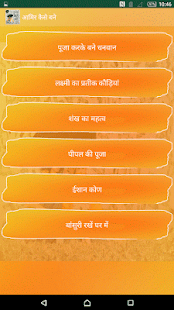 10:46
अमिर कैसे बने
पूजा करके बने धनवान
लक्ष्मी का प्रतीक कौड़ियां
शंख का महत्व
पीपल की पूजा
ईशान कोण
बांसुरी रखें घर में